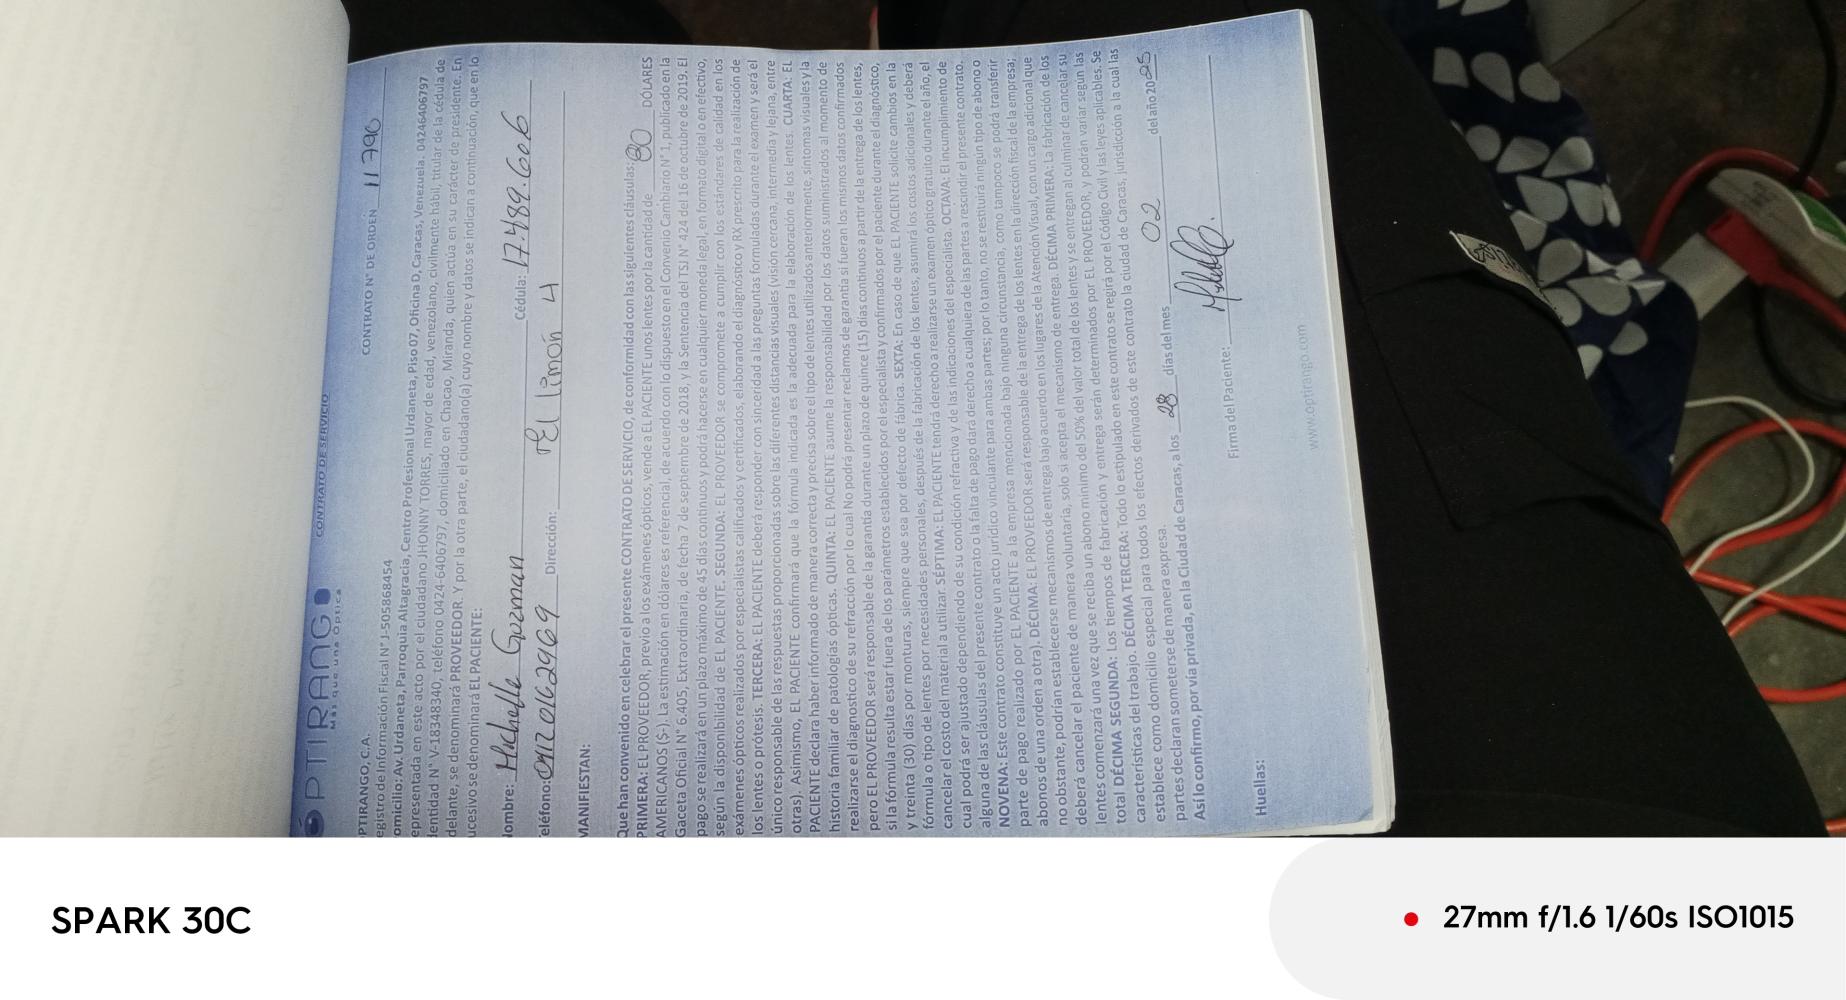 OPTIRANGO
Más que una Óptica
CONTRATO DE SERVICIO
CONTRATO N° DE ORDEN 11790
PTIRANGO, C.A.
egistro de Información Fiscal N° J-505868454
omicilio: Av. Urdaneta, Parroquia Altagracia, Centro Profesional Urdaneta, Piso 07, Oficina D, Caracas, Venezuela. 04246406797
epresentada en este acto por el ciudadano JHONNY TORRES, mayor de edad, venezolano, civilmente hábil, titular de la cédula de
dentidad N° V-18348340, teléfono 0424-6406797, domiciliado en Chacao, Miranda, quien actúa en su carácter de presidente. En
delante, se denominará PROVEEDOR. Y por la otra parte, el ciudadano(a) cuyo nombre y datos se indican a continuación, que en lo
ucesivo se denominará EL PACIENTE:
ombre: Michelle Guzman Cédula: 17.489.606
eléfono: 04120162969 Dirección: El limón 4
MANIFIESTAN:
Que han convenido en celebrar el presente CONTRATO DE SERVICIO, de conformidad con las siguientes cláusulas:
PRIMERA: EL PROVEEDOR, previo a los exámenes ópticos, vende a EL PACIENTE unos lentes por la cantidad de 80 DÓLARES
AMERICANOS ($·). La estimación en dólares es referencial, de acuerdo con lo dispuesto en el Convenio Cambiario N° 1, publicado en la
Gaceta Oficial N° 6.405, Extraordinaria, de fecha 7 de septiembre de 2018, y la Sentencia del TSJ N° 424 del 16 de octubre de 2019. El
pago se realizará en un plazo máximo de 45 días continuos y podrá hacerse en cualquier moneda legal, en formato digital o en efectivo,
según la disponibilidad de EL PACIENTE. SEGUNDA: EL PROVEEDOR se compromete a cumplir con los estándares de calidad en los
exámenes ópticos realizados por especialistas calificados y certificados, elaborando el diagnóstico y RX prescrito para la realización de
los lentes o prótesis. TERCERA: EL PACIENTE deberá responder con sinceridad a las preguntas formuladas durante el examen y será el
único responsable de las respuestas proporcionadas sobre las diferentes distancias visuales (visión cercana, intermedia y lejana, entre
otras). Asimismo, EL PACIENTE confirmará que la fórmula indicada es la adecuada para la elaboración de los lentes. CUARTA: EL
PACIENTE declara haber informado de manera correcta y precisa sobre el tipo de lentes utilizados anteriormente, síntomas visuales y la
historia familiar de patologías ópticas. QUINTA: EL PACIENTE asume la responsabilidad por los datos suministrados al momento de
realizarse el diagnostico de su refracción por lo cual No podrá presentar reclamos de garantía si fueran los mismos datos confirmados
pero EL PROVEEDOR será responsable de la garantía durante un plazo de quince (15) días continuos a partir de la entrega de los lentes,
si la fórmula resulta estar fuera de los parámetros establecidos por el especialista y confirmados por el paciente durante el diagnóstico,
y treinta (30) días por monturas, siempre que sea por defecto de fábrica. SEXTA: En caso de que EL PACIENTE solicite cambios en la
fórmula o tipo de lentes por necesidades personales, después de la fabricación de los lentes, asumirá los costos adicionales y deberá
cancelar el costo del material a utilizar. SÉPTIMA: EL PACIENTE tendrá derecho a realizarse un examen óptico gratuito durante el año, el
cual podrá ser ajustado dependiendo de su condición refractiva y de las indicaciones del especialista. OCTAVA: El incumplimiento de
alguna de las cláusulas del presente contrato o la falta de pago dará derecho a cualquiera de las partes a rescindir el presente contrato.
NOVENA: Este contrato constituye un acto jurídico vinculante para ambas partes; por lo tanto, no se restituirá ningún tipo de abono o
parte de pago realizado por EL PACIENTE a la empresa mencionada bajo ninguna circunstancia, como tampoco se podrá transferir
abonos de una orden a otra). DÉCIMA: EL PROVEEDOR será responsable de la entrega de los lentes en la dirección fiscal de la empresa;
no obstante, podrían establecerse mecanismos de entrega bajo acuerdo en los lugares de la Atención Visual, con un cargo adicional que
deberá cancelar el paciente de manera voluntaria, solo si acepta el mecanismo de entrega. DÉCIMA PRIMERA: La fabricación de los
lentes comenzará una vez que se reciba un abono mínimo del 50% del valor total de los lentes y se entregan al culminar de cancelar su
total DÉCIMA SEGUNDA: Los tiempos de fabricación y entrega serán determinados por EL PROVEEDOR, y podrán variar según las
características del trabajo. DÉCIMA TERCERA: Todo lo estipulado en este contrato se regirá por el Código Civil y las leyes aplicables. Se
establece como domicilio especial para todos los efectos derivados de este contrato la ciudad de Caracas, jurisdicción a la cual las
partes declaran someterse de manera expresa.
Así lo confirmo, por vía privada, en la Ciudad de Caracas, a los 28 días del mes 02 del año 2025
Firma del Paciente:
Huellas:
www.optirango.com
SPARK 30C
27mm f/1.6 1/60s ISO1015